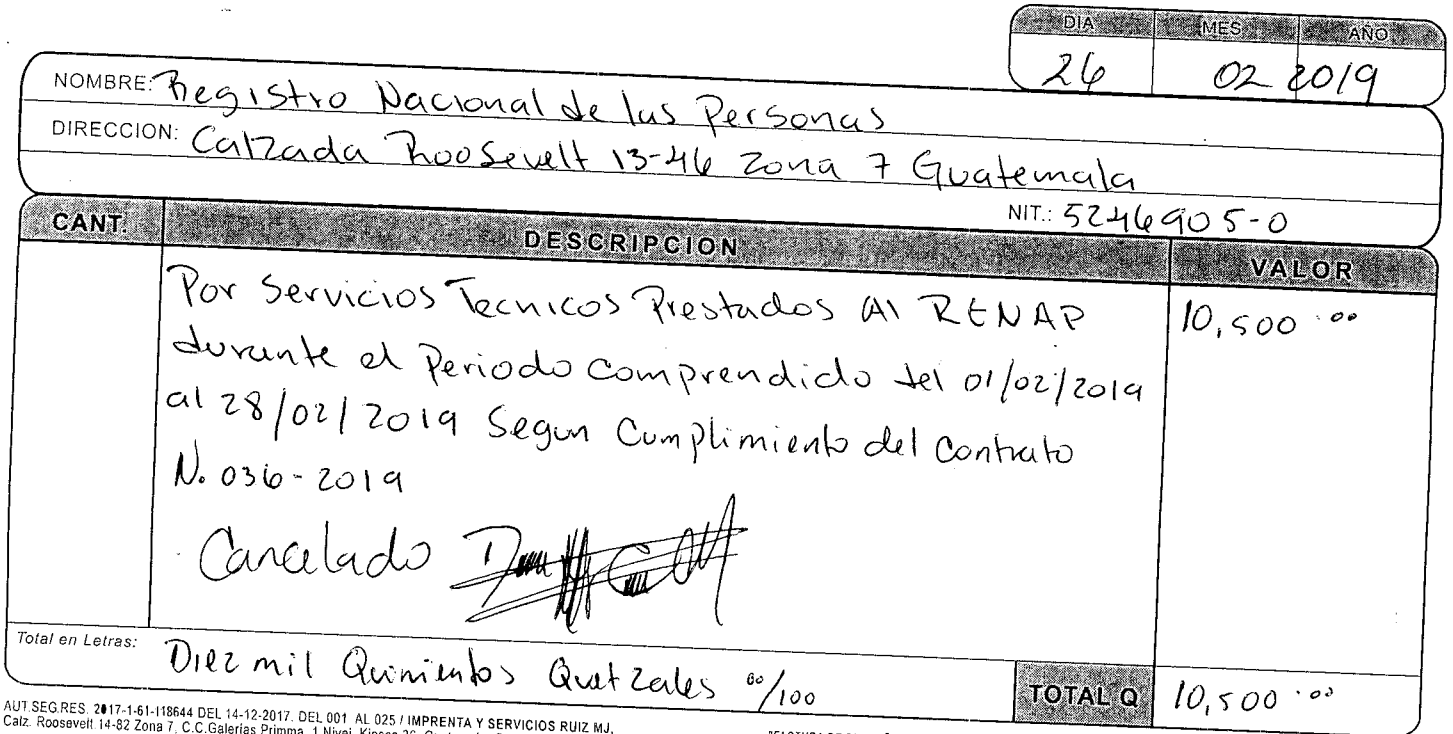 DIA MES AÑO
26 02 2019
NOMBRE: Registro Nacional de las Personas
DIRECCION: Calzada Roosevelt 13-46 Zona 7 Guatemala
NIT.: 5246905-0
CANT. DESCRIPCION VALOR
Por Servicios Tecnicos Prestados Al RENAP 10,500.00
durante el Periodo comprendido del 01/02/2019
al 28/02/2019 Segun Cumplimiento del Contrato
N. 036-2019
Cancelado
Total en Letras: Diez mil Quinientos Quetzales 00/100
TOTAL Q 10,500.00
AUT.SEG.RES. 2017-1-61-118644 DEL 14-12-2017. DEL 001 AL 025 / IMPRENTA Y SERVICIOS RUIZ MJ,
Calz. Roosevelt 14-82 Zona 7, C.C.Galerias Primma, 1 Nivel,